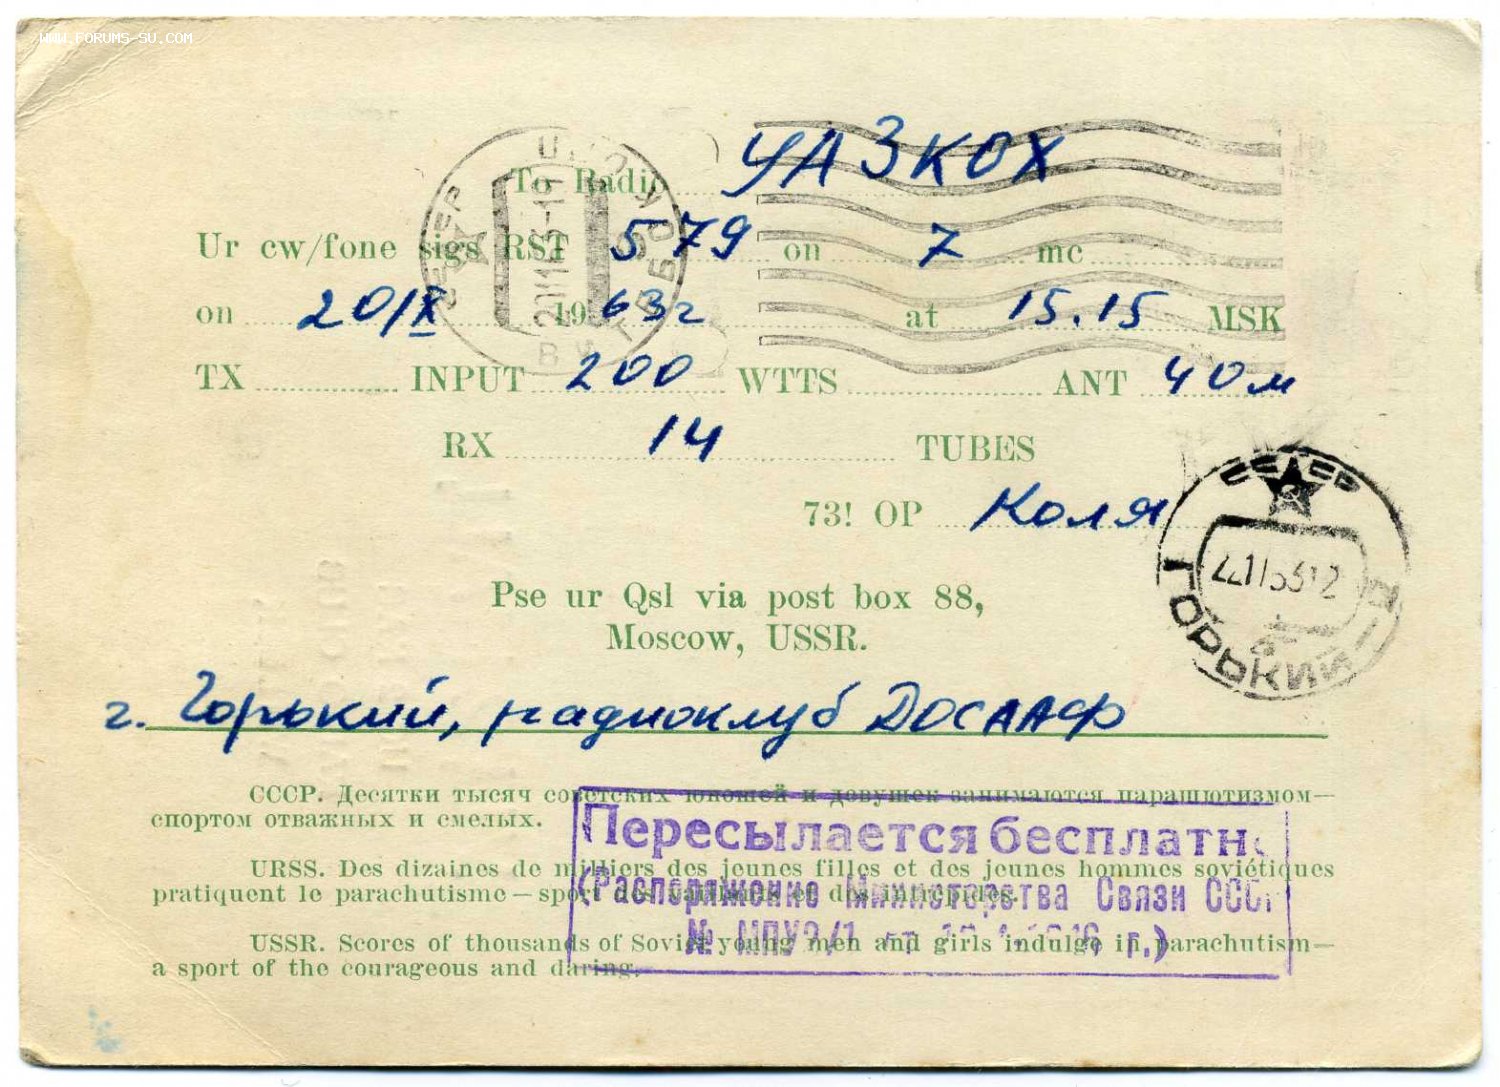 WWW.FORUMS-SU.COM
To Radio УА3КОХ
Ur cw/fone sigs RST 579 on 7 mc
on 20/X 1963г at 15.15 MSK
TX INPUT 200 WTTS ANT 40м
RX 14 TUBES
73! OP Коля
СССР
ГОРЬКИЙ
Pse ur Qsl via post box 88,
Moscow, USSR.
г. Горький, радиоклуб ДОСААФ
СССР. Десятки тысяч советских юношей и девушек занимаются парашютизмом—
спортом отважных и смелых.
Пересылается бесплатно
URSS. Des dizaines de milliers des jeunes filles et des jeunes hommes soviétiques
pratiquent le parachutisme — sport des vaillants et des intrépides.
(Распоряжение Министерства Связи СССР
USSR. Scores of thousands of Soviet young men and girls indulge in parachutism—
№ МПУ2/1 г.)
a sport of the courageous and daring.